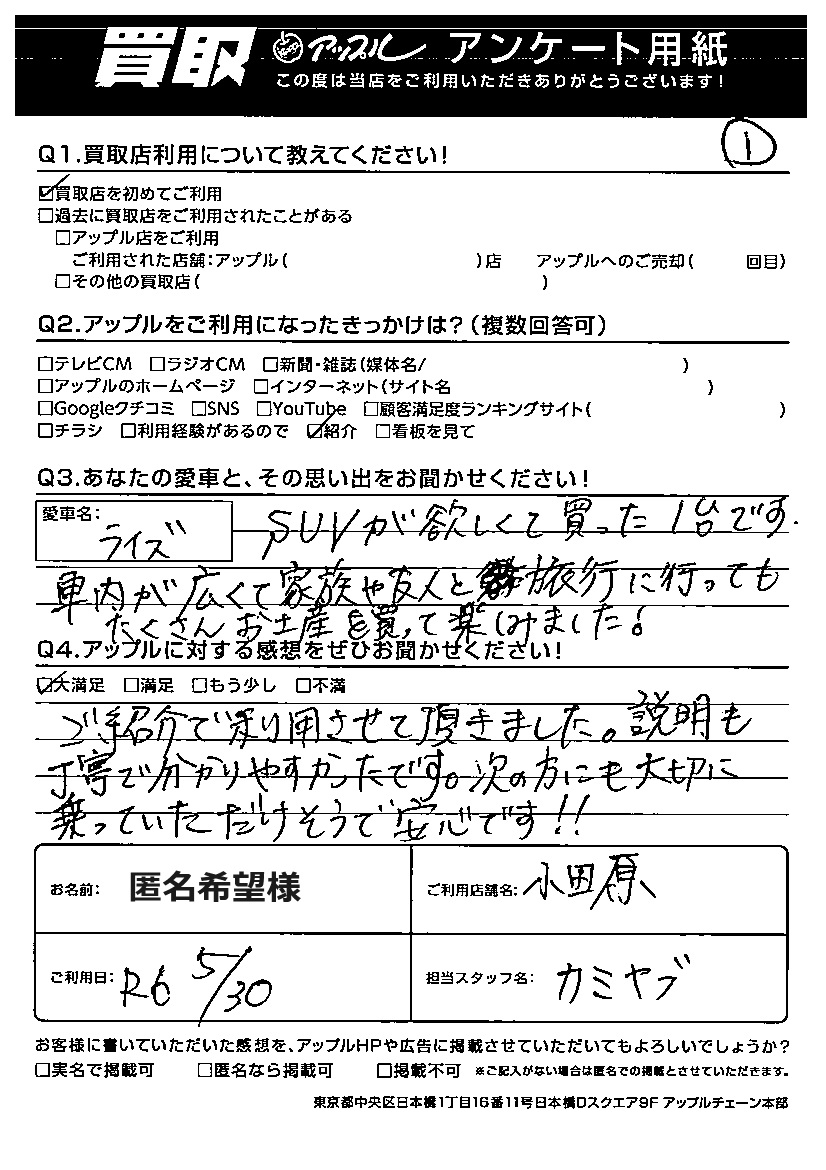 買取 アップル アンケート用紙
この度は当店をご利用いただきありがとうございます!
①
Q1.買取店利用について教えてください!
☑買取店を初めてご利用
□過去に買取店をご利用されたことがある
□アップル店をご利用
ご利用された店舗:アップル( )店 アップルへのご売却( 回目)
□その他の買取店( )
Q2.アップルをご利用になったきっかけは?(複数回答可)
□テレビCM □ラジオCM □新聞・雑誌(媒体名/ )
□アップルのホームページ □インターネット(サイト名 )
□Googleクチコミ □SNS □YouTube □顧客満足度ランキングサイト( )
□チラシ □利用経験があるので ☑紹介 □看板を見て
Q3.あなたの愛車と、その思い出をお聞かせください!
愛車名: ライズ
SUVが欲しくて買った1台です.
車内が広くて家族や友人と旅行に行っても
たくさんお土産を買って楽しみました!
Q4.アップルに対する感想をぜひお聞かせください!
☑大満足 □満足 □もう少し □不満
ご紹介で利用させて頂きました。説明も
丁寧で分かりやすかったです。次の方にも大切に
乗っていただけそうで安心です!!
お名前: 匿名希望様
ご利用店舗名: 小田原
ご利用日: R6 5/30
担当スタッフ名: カミヤブ
お客様に書いていただいた感想を、アップルHPや広告に掲載させていただいてもよろしいでしょうか?
□実名で掲載可 □匿名なら掲載可 □掲載不可 ※ご記入がない場合は匿名での掲載とさせていただきます。
東京都中央区日本橋1丁目16番11号日本橋Dスクエア9F アップルチェーン本部